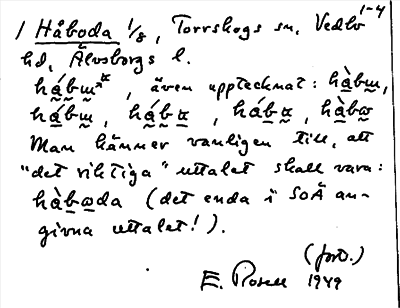 1-4
/ Håboda 1/8, Torrskogs sn, Vedbo
hd, Älvsborgs l.
hábɯ*, även upptecknat: hàbɯ,
hábɯ, hábɤ, hábɤ, hàbɷ
Man känner vanligen till, att
"det riktiga" uttalet skall vara:
hàbɷda (det enda i SOÄ an-
givna uttalet!).
(forts.)
E. Rosell 1949